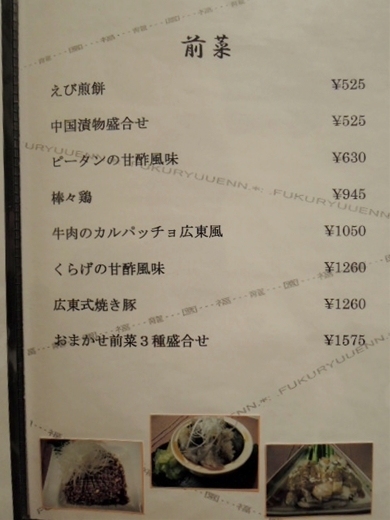 前菜
えび煎餅 ¥525
中国漬物盛合せ ¥525
ピータンの甘酢風味 ¥630
棒々鶏 ¥945
牛肉のカルパッチョ広東風 ¥1050
くらげの甘酢風味 ¥1260
広東式焼き豚 ¥1260
おまかせ前菜３種盛合せ ¥1575
FUKURYUUENN